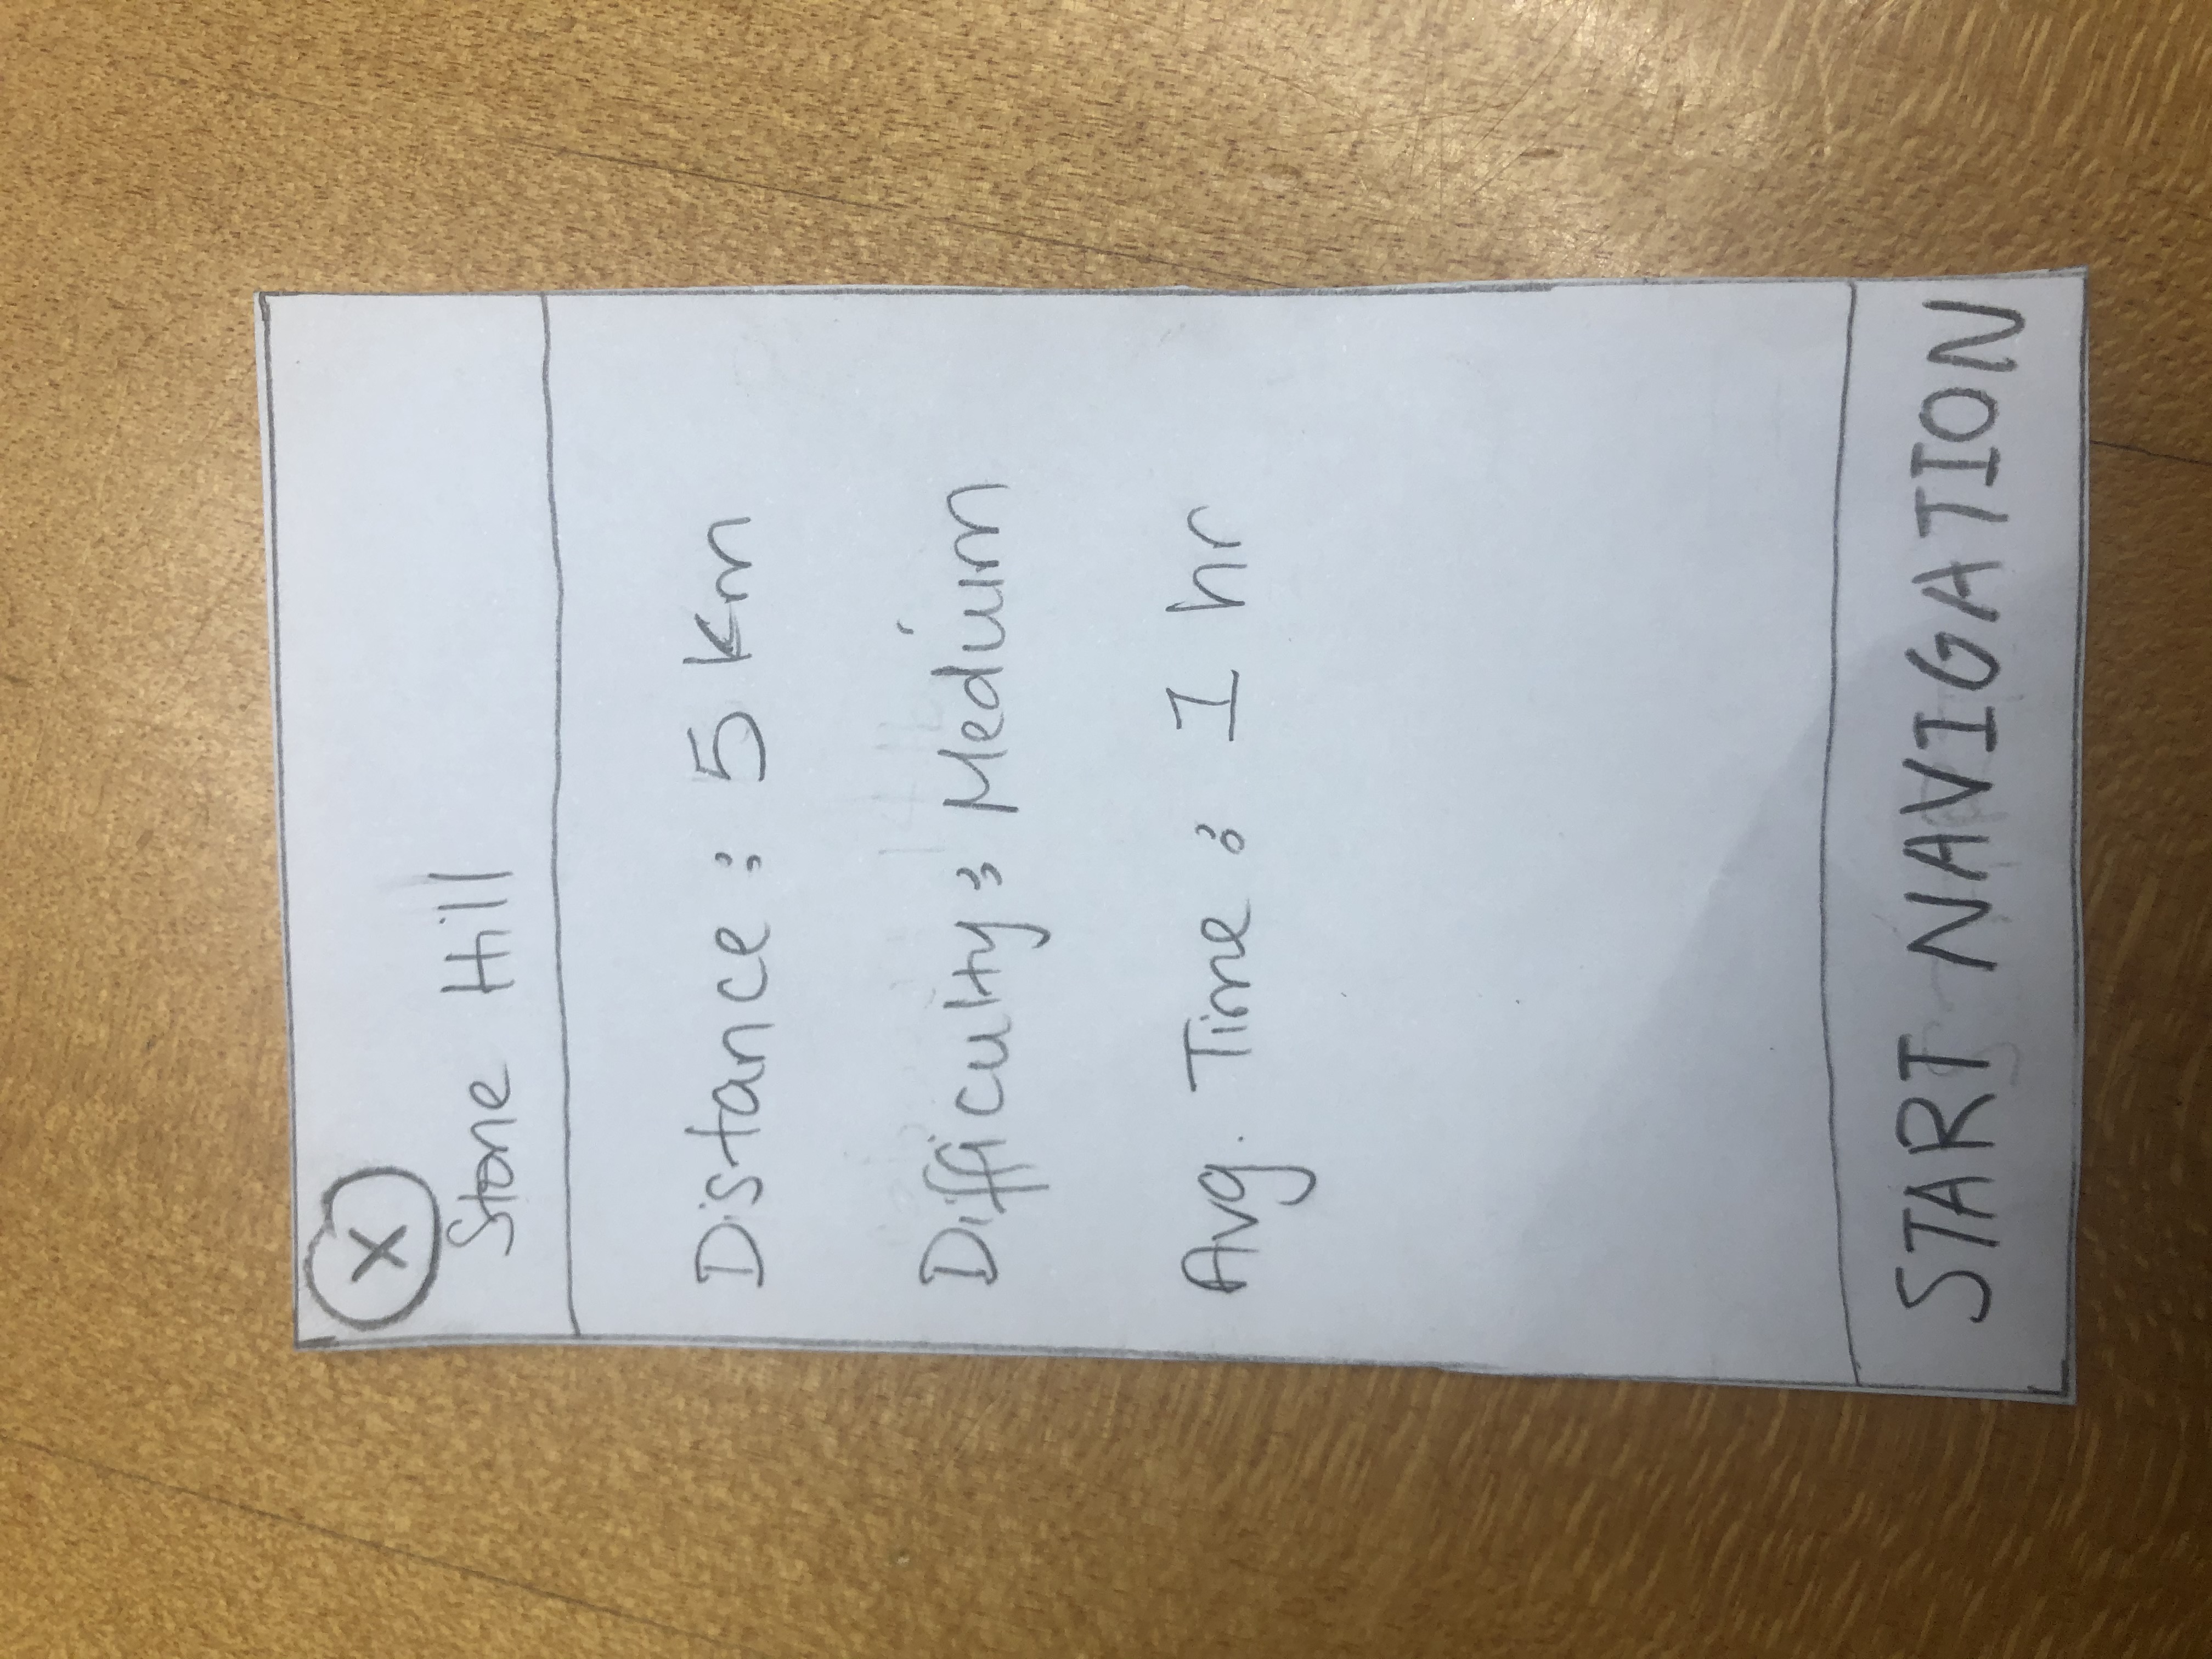 X
Stone Hill
Distance: 5 Km
Difficulty: Medium
Avg. Time: 1 hr
START NAVIGATION